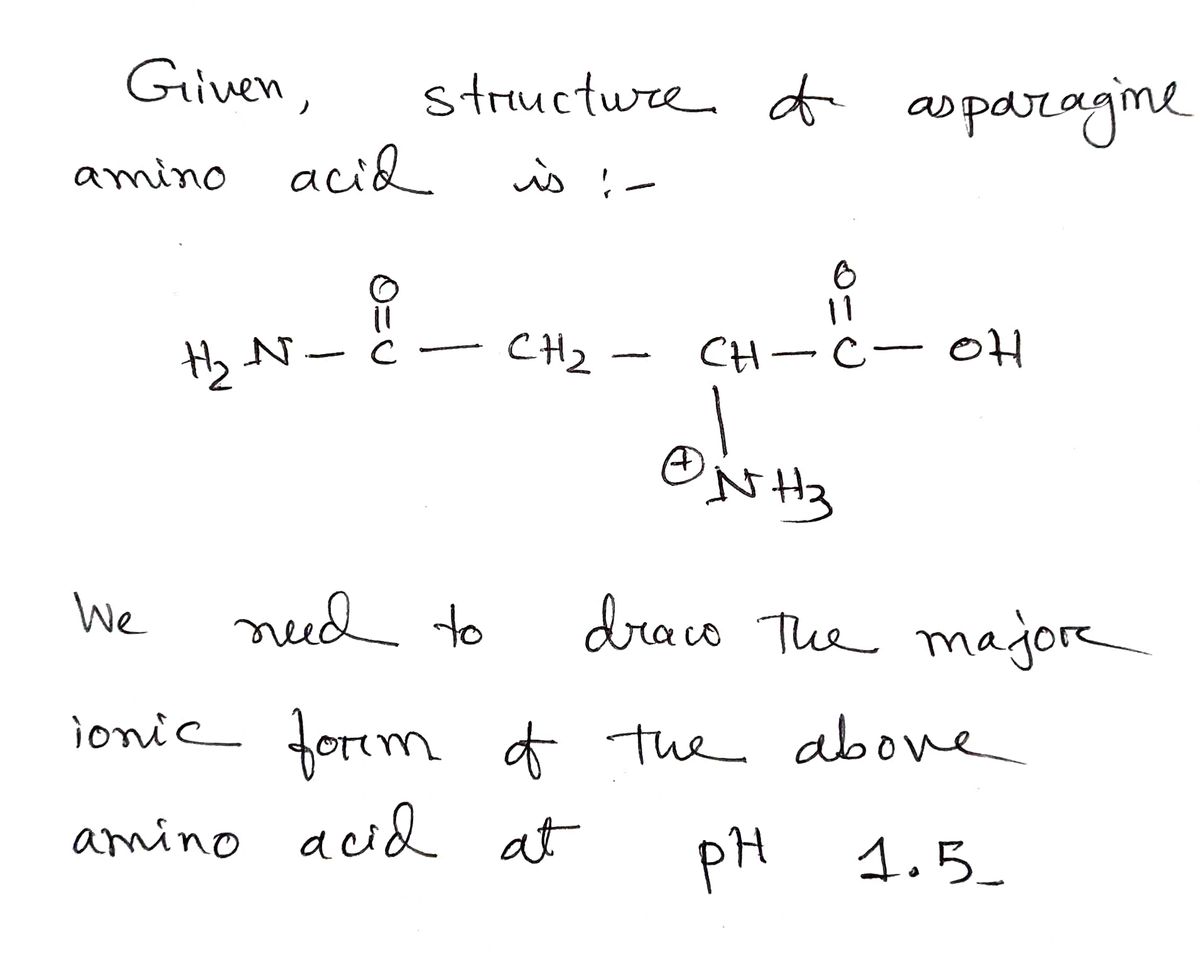 Given, structure of asparagine
amino acid is :-
O O
|| ||
H₂N — C — CH₂ — CH — C — OH
|
⊕NH₃
We need to draw the major
ionic form of the above
amino acid at pH 1.5